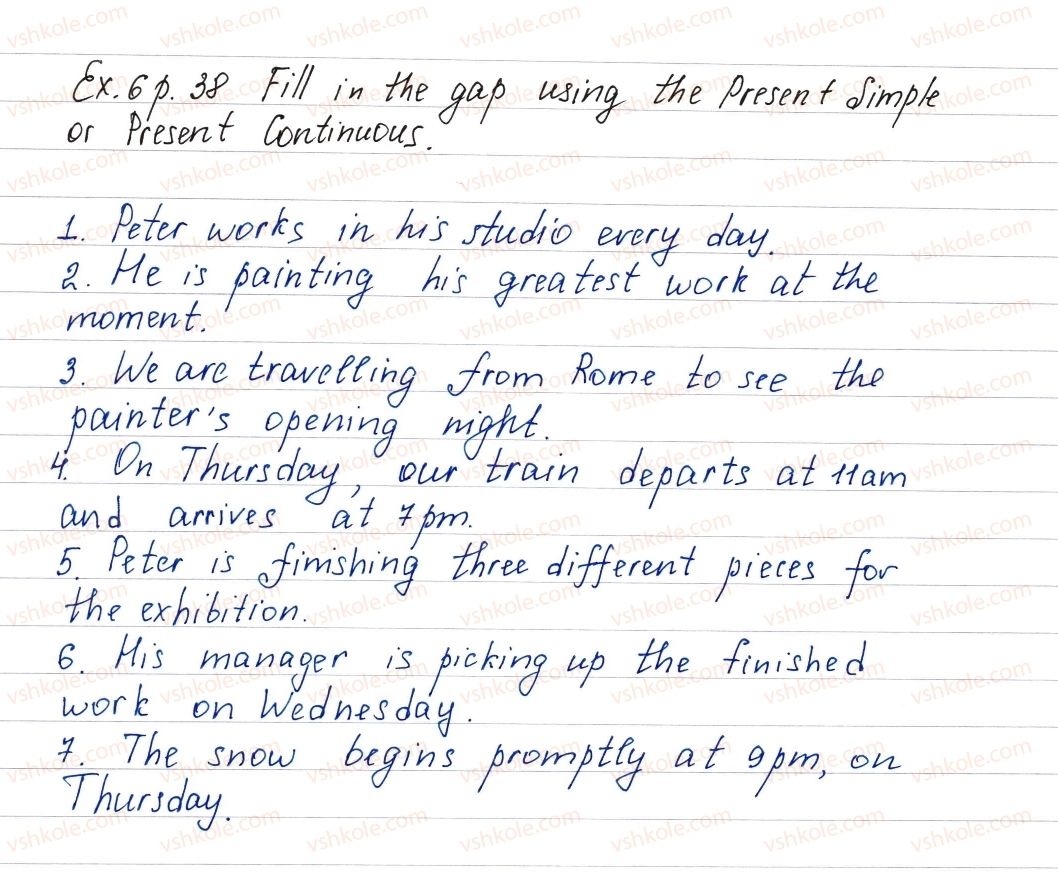 Ex. 6 p. 38 Fill in the gap using the Present Simple
or Present Continuous.
1. Peter works in his studio every day.
2. He is painting his greatest work at the
moment.
3. We are travelling from Rome to see the
painter's opening night.
4. On Thursday, our train departs at 11am
and arrives at 7pm.
5. Peter is finishing three different pieces for
the exhibition.
6. His manager is picking up the finished
work on Wednesday.
7. The snow begins promptly at 9pm, on
Thursday.